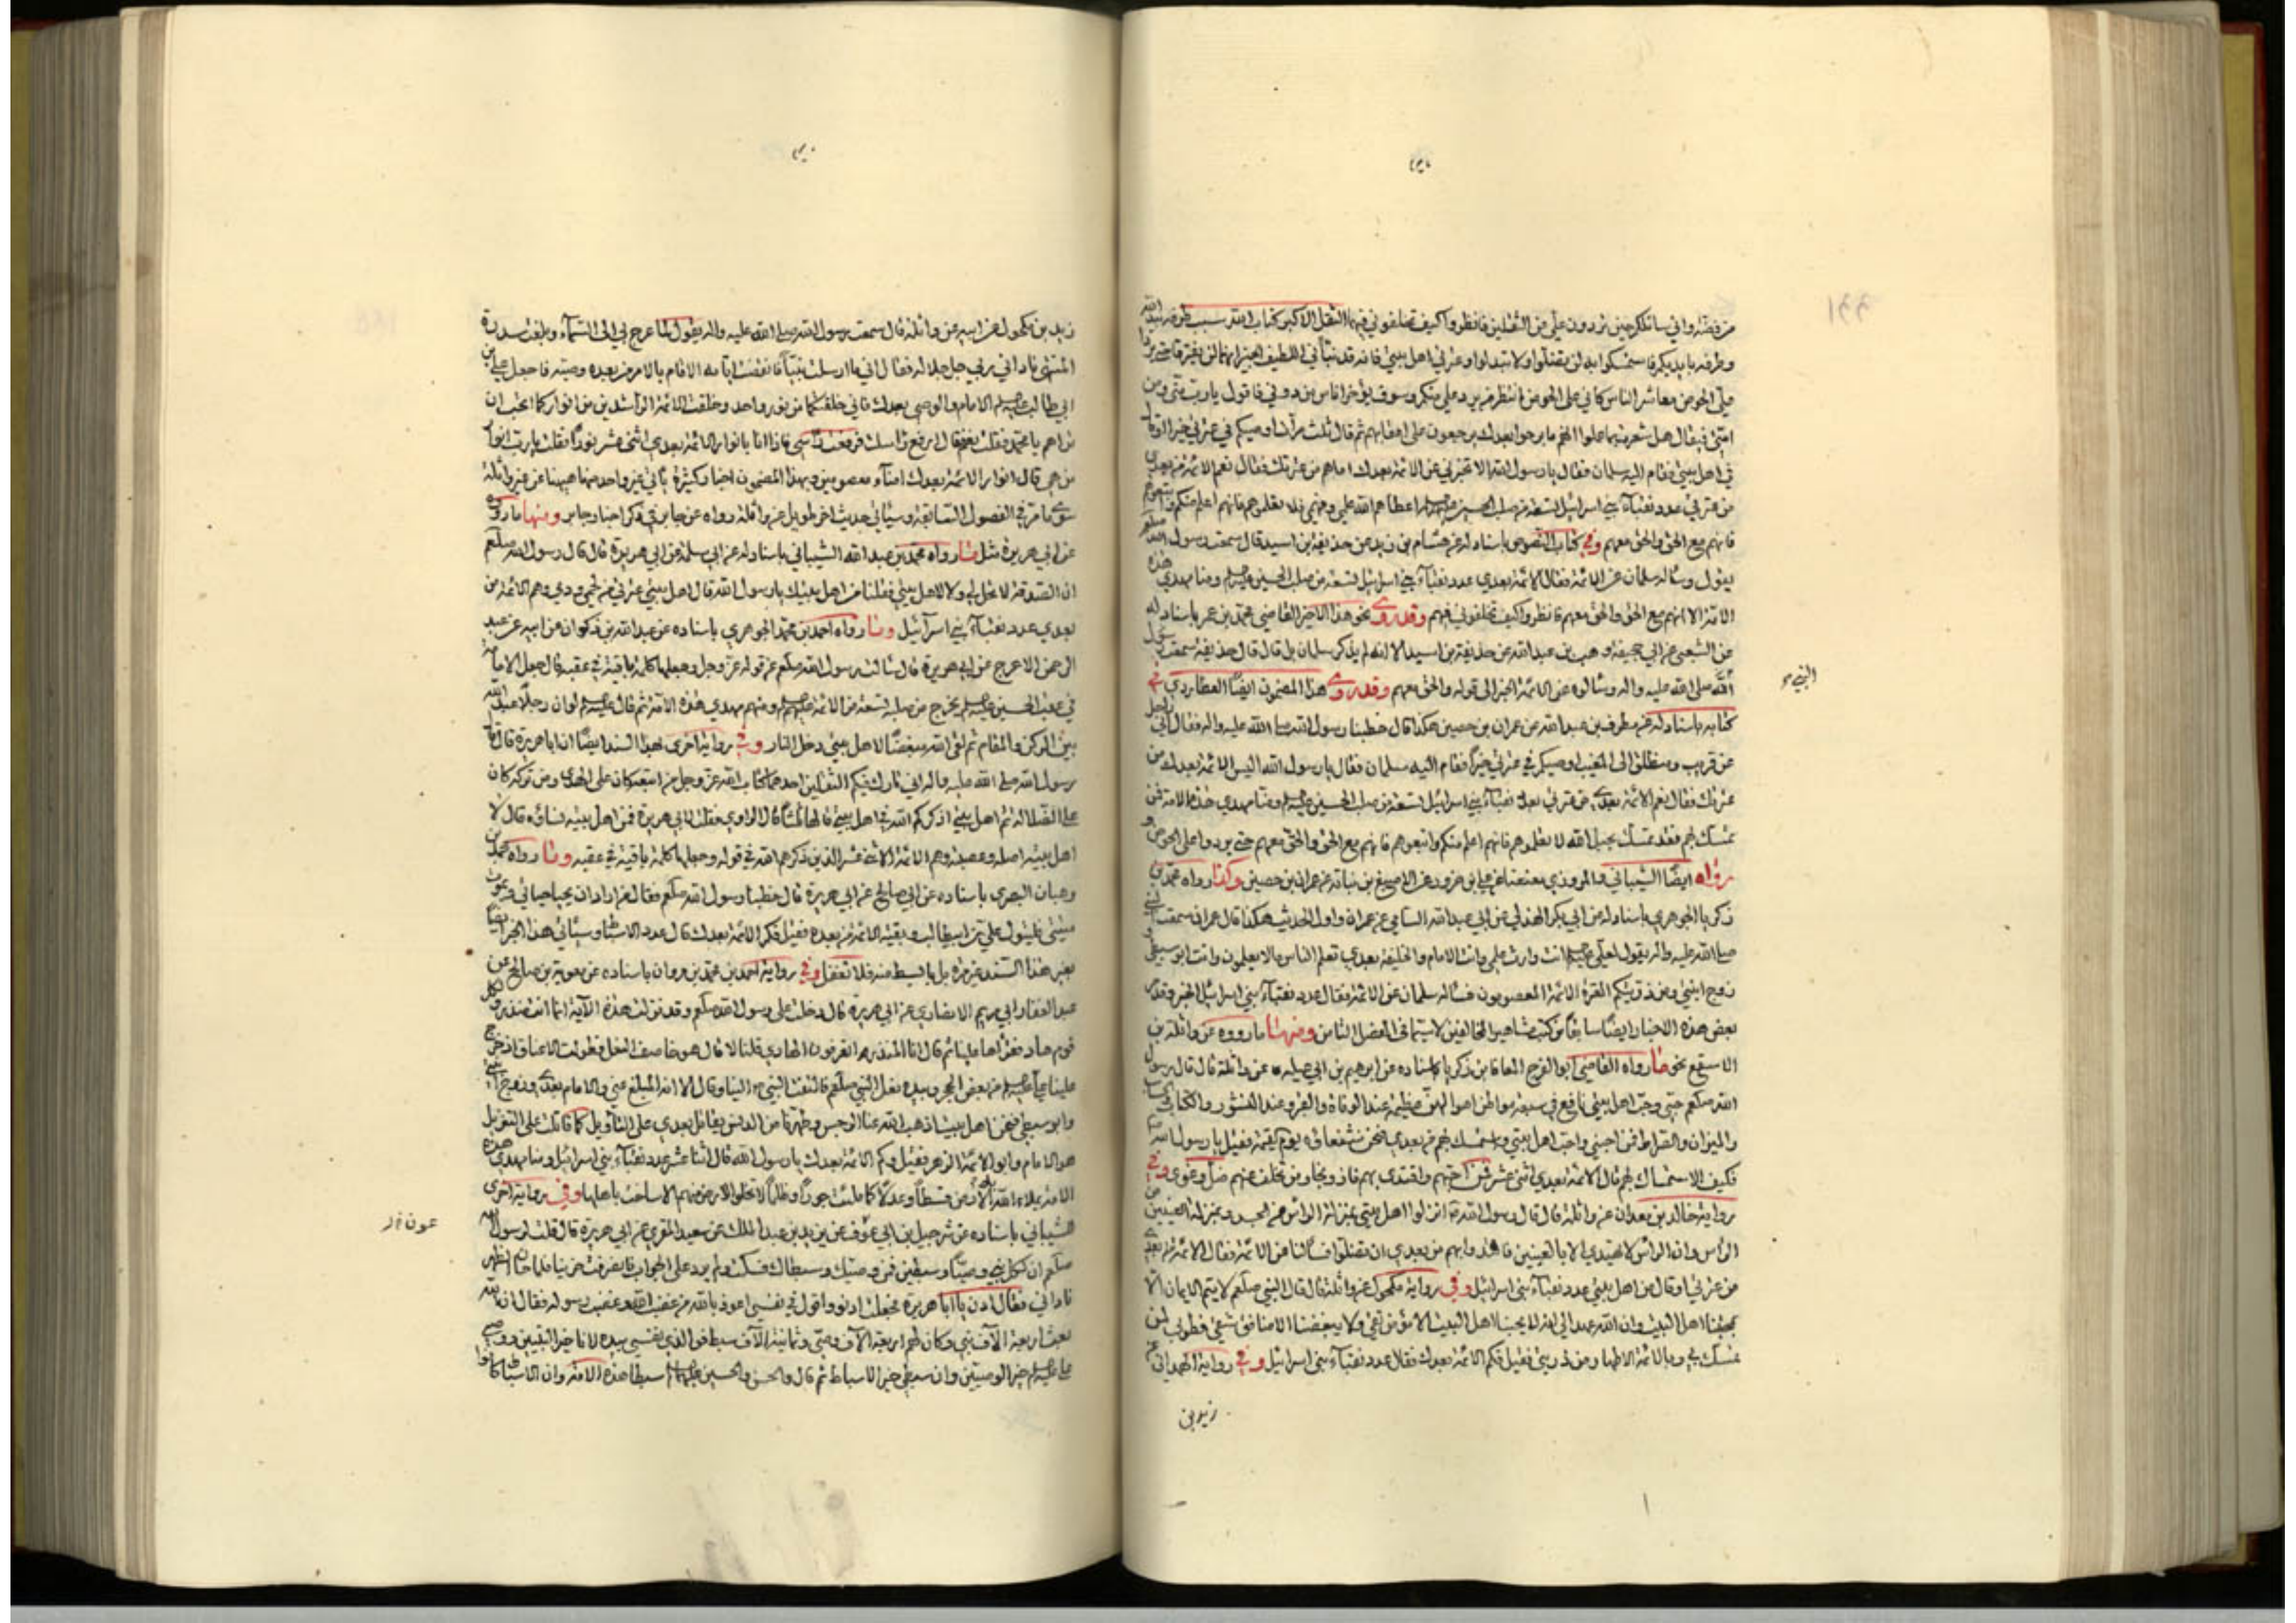 من فضة واني سائلكم حين تردون علي عن الثقلين فانظروا كيف تخلفوني فيهما الثقل الاكبر كتاب الله سبب طرفه بيد الله
وطرفه بايديكم فاستمسكوا به لن تضلوا ولا تبدلوا وعترتي اهل بيتي فانه قد نبأني اللطيف الخبير انهما لن يفترقا حتى يردا
علي الحوض معاشر الناس كأني على الحوض انتظر من يرد علي منكم وسوف يؤخر اناس من دوني فاقول يا رب مني ومن
امتي فيقال هل شعرت بما عملوا انهم ما برحوا بعدك يرجعون على اعقابهم ثم قال ثلث مرات اوصيكم في عترتي خيرا او قال
في اهل بيتي فقام اليه سلمان فقال يا رسول الله الا تخبرني عن الائمة بعدك اما هم من عترتك فقال نعم الائمة من بعدي
من عترتي عدد نقباء بني اسرائيل تسعة من صلب الحسين اعطاهم الله علمي وفهمي فلا تعلموهم فانهم اعلم منكم واتبعوهم
فانهم مع الحق والحق معهم وفي كتاب النصوص باسناد له عن هشام بن زيد عن حذيفة بن اسيد قال سمعت رسول الله صلعم
يقول وسأله سلمان عن الائمة فقال الائمة بعدي عدد نقباء بني اسرائيل تسعة من صلب الحسين ومنا مهدي هذه
الامة الا انهم مع الحق والحق معهم فانظروا كيف تخلفوني فيهم وقد روى نحو هذا الاخير القاضي محمد بن عمر باسناد له
عن الشعبي عن ابي جحيفة وهب بن عبد الله عن حذيفة بن اسيد الا انه لم يذكر سلمان بل قال قال حذيفة سمعت رسول
الله صلى الله عليه واله وسألوه عن الائمة الخبر الى قوله والحق معهم وقد روى هذا المضمون ايضا العطاردي في
كتابه باسناد له عن مطرف بن عبد الله عن عمران بن حصين هكذا قال خطبنا رسول الله صلى الله عليه واله فقال اني راحل
عن قريب ومنطلق الى المغيب اوصيكم في عترتي خيرا فقام اليه سلمان فقال يا رسول الله اليس الائمة بعدك من
عترتك فقال نعم الائمة بعدي من عترتي بعدد نقباء بني اسرائيل تسعة من صلب الحسين ومنا مهدي هذه الامة فمن
تمسك بهم فقد تمسك بحبل الله لا تعلموهم فانهم اعلم منكم واتبعوهم فانهم مع الحق والحق معهم حتى يردوا على الحوض و
رواه ايضا الشيباني والمروزي معنعنا عن علي بن حزور عن الاصبغ بن نباته عن عمران بن حصين وكذا رواه محمد بن
زكريا الجوهري باسناد له عن ابي بكر الهذلي عن ابي عبد الله الشامي عن عمران واول الحديث هكذا قال عمران سمعت النبي
صلى الله عليه واله يقول لعلي انت وارث علمي وانت الامام والخليفة بعدي تعلم الناس ما لا يعلمون وانت ابو سبطي و
زوج ابنتي ومن ذريتكم العترة الائمة المعصومون فسأله سلمان عن الائمة فقال عدد نقباء بني اسرائيل الخبر وقد مر
بعض هذه الاخبار ايضا سابقا من كتب مشاهير المخالفين لا سيما في الفصل الثامن ومنها ما رووه عن واثلة بن
الاسقع نحو ما رواه القاضي ابو الفرج المعافا بن زكريا باسناده عن ابرهيم بن ابي عبلة عن واثلة قال قال رسول
الله صلعم حبي وحب اهل بيتي نافع في سبعة مواطن اهوالهن عظيمة عند الوفاة والقبر وعند النشور والكتاب والحساب
والميزان والصراط فمن احبني واحب اهل بيتي واستمسك بهم من بعدي فنحن شفعاؤه يوم القيمة فقيل يا رسول الله
فكيف الاستمساك بهم قال الائمة بعدي اثنى عشر فمن احبهم واقتدى بهم فاز ونجا ومن تخلف عنهم ضل وغوى وفي
رواية خالد بن معدان عن واثلة قال قال رسول الله انزلوا اهل بيتي بمنزلة الراس من الجسد وبمنزلة العينين من
الراس وان الراس لا يهتدي الا بالعينين فاقتدوا بهم من بعدي ان تضلوا فسألنا عن الائمة فقال الائمة من بعدي
من عترتي او قال من اهل بيتي عدد نقباء بني اسرائيل وفي رواية مكحول عن واثلة قال قال النبي صلعم لا يتم الايمان الا
بمحبتنا اهل البيت وان الله عهد الي انه لا يحبنا اهل البيت الا مؤمن تقي ولا يبغضنا الا منافق شقي فطوبى لمن
تمسك بي وبالائمة الاطهار من ذريتي فقيل فكم الائمة بعدك فقال عدد نقباء بني اسرائيل وفي رواية الهمداني عن
زيد بن
النبي
زيد بن مكحول عن ابيه عن واثلة قال سمعت رسول الله صلى الله عليه واله يقول لما عرج بي الى السماء وبلغت سدرة
المنتهى ناداني ربي جل جلاله فقال اني ما ارسلت نبيا فانقضت ايامه الا قام بالامر من بعده وصيه فاجعل علي بن
ابي طالب الامام والوصي بعدك فاني خلقتكما من نور واحد وخلقت الائمة الراشدين من انواركما اتحب ان
تراهم يا محمد فقلت نعم فقال ارفع راسك فرفعت راسي فاذا انا بانوار الائمة بعدي اثنى عشر نورا فقلت يا رب انوار
من هي قال انوار الائمة بعدك امناء معصومين وبهذا المضمون اخبار كثيرة يأتي غير واحد منها ههنا عن غير واثلة
سوى ما مر في الفصول السابقة وسيأتي حديث اخر طويل عن واثلة رواه عن جابر في ذكر اخبار جابر ومنها ما رووه
عن ابي هريرة مثل ما رواه محمد بن عبد الله الشيباني باسناد له عن ابي سلمة عن ابي هريرة قال قال رسول الله صلعم
ان الصدقة لا تحل لي ولا لاهل بيتي فقلنا من اهل بيتك يا رسول الله قال اهل بيتي عترتي من لحمي ودمي وهم الائمة من
بعدي عدد نقباء بني اسرائيل وما رواه احمد بن محمد الجوهري باسناده عن عبد الله بن ذكوان عن ابيه عن عبد
الرحمن الاعرج عن ابي هريرة قال سألت رسول الله صلعم عن قوله عز وجل وجعلها كلمة باقية في عقبه قال جعل الامامة
في عقب الحسين يخرج من صلبه تسعة من الائمة ومنهم مهدي هذه الامة ثم قال لو ان رجلا عبد الله
بين الركن والمقام ثم لقى الله مبغضا لاهل بيتي دخل النار وفي رواية اخرى بهذا السند ايضا ان ابا هريرة قال قال
رسول الله صلى الله عليه واله اني تارك فيكم الثقلين احدهما كتاب الله عز وجل من اتبعه كان على الهدى ومن تركه كان
على الضلالة ثم اهل بيتي اذكركم الله في اهل بيتي قالها ثلثا قال الراوي فقلت لابي هريرة فمن اهل بيته نساؤه قال لا
اهل بيته اصله وعصبته وهم الائمة الاثنى عشر الذين ذكرهم الله في قوله وجعلها كلمة باقية في عقبه وما رواه محمد بن
وهبان البصري باسناده عن ابي صالح عن ابي هريرة قال خطبنا رسول الله صلعم فقال من اراد ان يحيا حياتي ويموت
ميتتي فليتول علي بن ابي طالب وبقية الائمة من بعده فقيل فكم الائمة بعدك قال عدد الاسباط وسيأتي هذا الخبر ايضا
بغير هذا السند عن غيره بل بابسط منه فلا تغفل وفي رواية احمد بن محمد بن مروان باسناده عن معوية بن صالح عن
عبد الغفار ابي مريم الانصاري عن ابي هريرة قال دخلت على رسول الله صلعم وقد نزلت هذه الآية انما انت منذر ولكل
قوم هاد فقرأها علينا ثم قال انا المنذر اتعرفون الهادي قلنا لا قال هو خاصف النعل فطولت الاعناق اذ خرج
علينا علي من بعض الحجر وبيده نعل النبي صلعم فالتفت النبي الينا وقال الا انه المبلغ عني والامام بعدي وزوج ابنتي
وابو سبطي فنحن اهل بيت اذهب الله عنا الرجس وطهرنا من الدنس يقاتل بعدي على التأويل كما قاتلت على التنزيل
هو الامام وابو الائمة الزهر فقيل وكم الائمة بعدك يا رسول الله قال اثنا عشر عدد نقباء بني اسرائيل ومنا مهدي هذه
الامة يملاء الله الارض قسطا وعدلا كما ملئت جورا وظلما لا تخلوا الارض منهم الا ساخت باهلها وفي رواية اخرى
للشيباني باسناده عن شرحبيل بن ابي عوف عن يزيد بن عبد الملك عن سعيد المقري عن ابي هريرة قال قلت لرسول الله
صلعم ان لكل نبي وصيا وسبطين فمن وصيك وسبطاك فسكت ولم يرد علي الجواب فانصرفت حزينا فلما حان الظهر
ناداني فقال ادن يا ابا هريرة فجعلت ادنو واقول في نفسي اعوذ بالله من غضب الله وغضب رسوله فقال ان الله
بعث اربعة آلاف نبي وكان لهم اربعة آلاف وصي وثمانية آلاف سبط فوالذي نفسي بيده لانا خير النبيين ووصيي
علي خير الوصيين وان سبطي خير الاسباط ثم قال والحسن والحسين سبطا هذه الامة وان الاسباط كانوا
عون